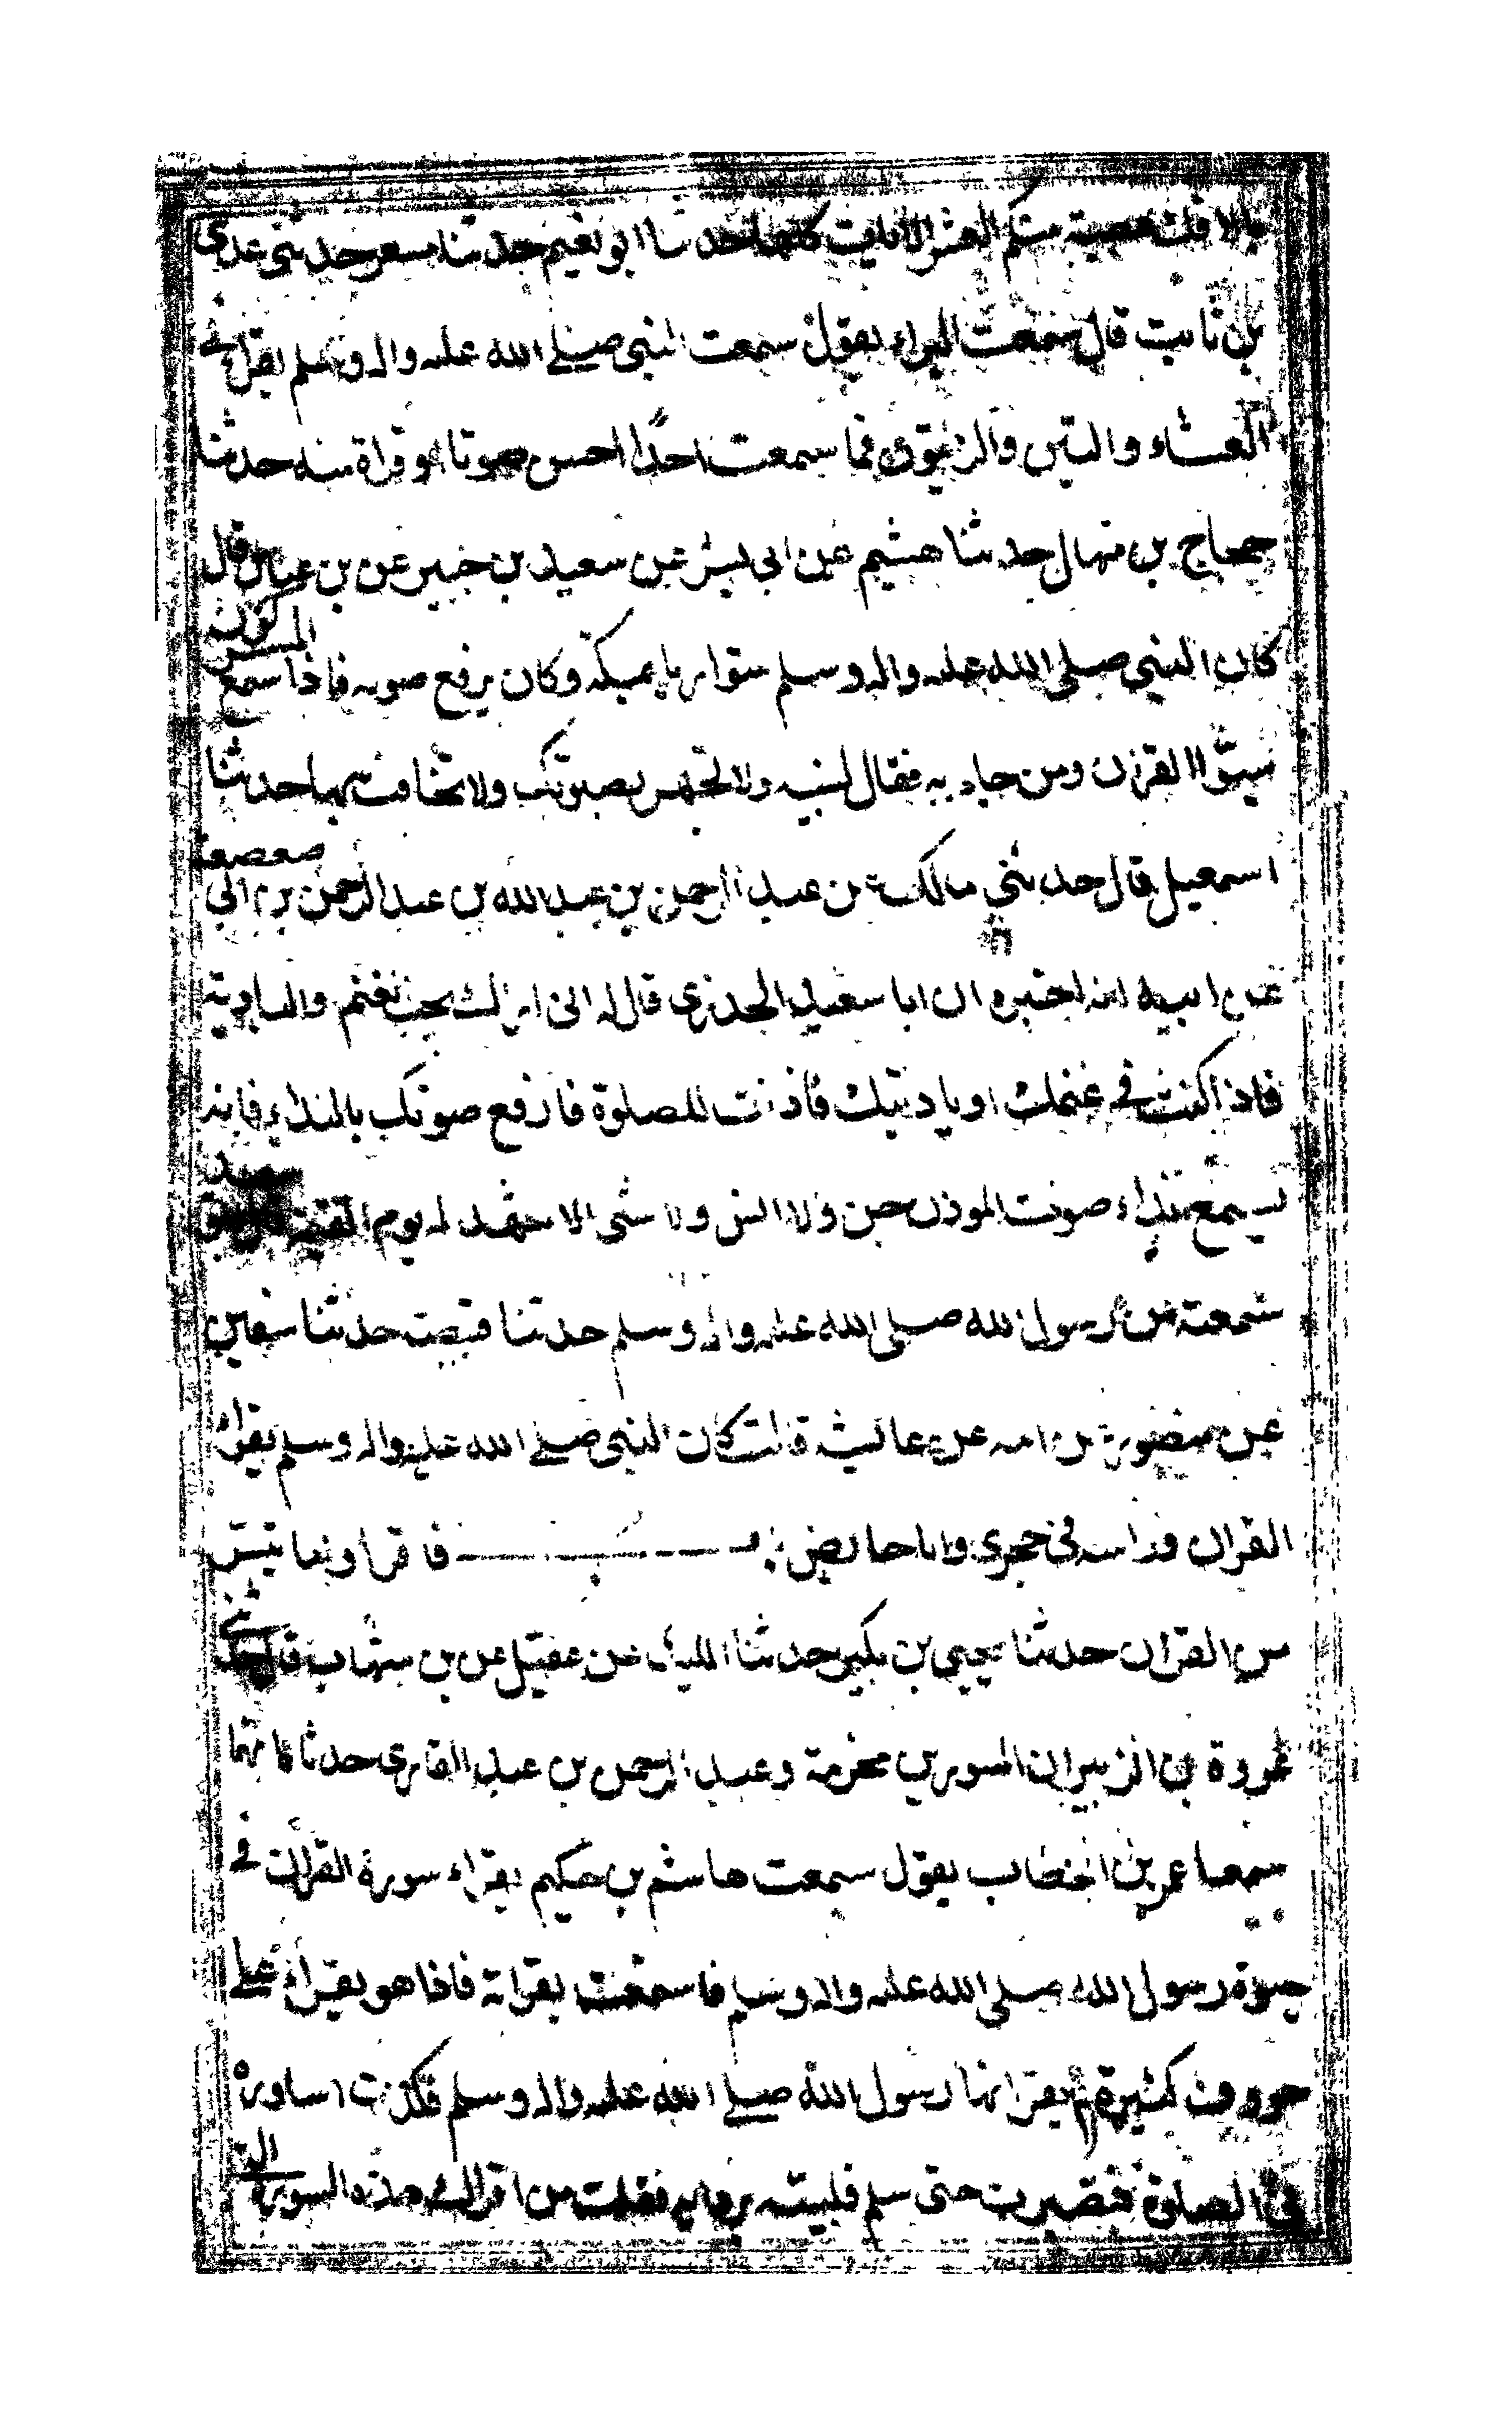 بالافك عصبة منكم العشر الايات كلها حدثنا ابو نعيم حدثنا مسعر حدثني عدي
بن ثابت قال سمعت البراء يقول سمعت النبي صلى الله عليه واله وسلم يقراء في
العشاء والتين والزيتون فما سمعت احدا احسن صوتا او قراة منه حدثنا
حجاج بن منهال حدثنا هشيم عن ابي بشر عن سعيد بن جبير عن بن عباس قال
كان النبي صلى الله عليه واله وسلم متواريا بمكة وكان يرفع صوته فاذا سمع المشركون
سبوا القران ومن جاء به فقال لنبيه ولا تجهر بصوتك ولا تخافت بها حدثنا
اسمعيل قال حدثني مالك عن عبد الرحمن بن عبد الله بن عبد الرحمن بن ابي صعصعة
عن ابيه انه اخبره ان ابا سعيد الخدري قال له اني اراك تحب الغنم والبادية
فاذا كنت في غنمك او باديتك فاذنت للصلوة فارفع صوتك بالنداء فانه
يسمع نداء صوت الموذن جن ولا انس ولا شي الا شهد له يوم القيمة قال ابو سعيد
سمعته من رسول الله صلى الله عليه واله وسلم حدثنا قبيصة حدثنا سفين
عن منصور عن امه عن عائشة قالت كان النبي صلى الله عليه واله وسلم يقرا
القران وراسه في حجري وانا حايض باب فاقراوا ما تيسر
من القران حدثنا يحيى بن بكير حدثنا الليث عن عقيل عن بن شهاب قال حدثني
عروة بن الزبير ان المسور بن مخرمة وعبد الرحمن بن عبد القاري حدثاه انهما
سمعا عمر بن الخطاب يقول سمعت هاشم بن حكيم يقراء سورة الفرقان في
حيوة رسول الله صلى الله عليه واله وسلم فاستمعت لقراته فاذا هو يقرا على
حروف كثيرة لم يقرانيها رسول الله صلى الله عليه واله وسلم فكدت اساوره
في الصلوة فتصبرت حتى سلم فلببته بردايه فقلت من اقراك هذه السورة التي